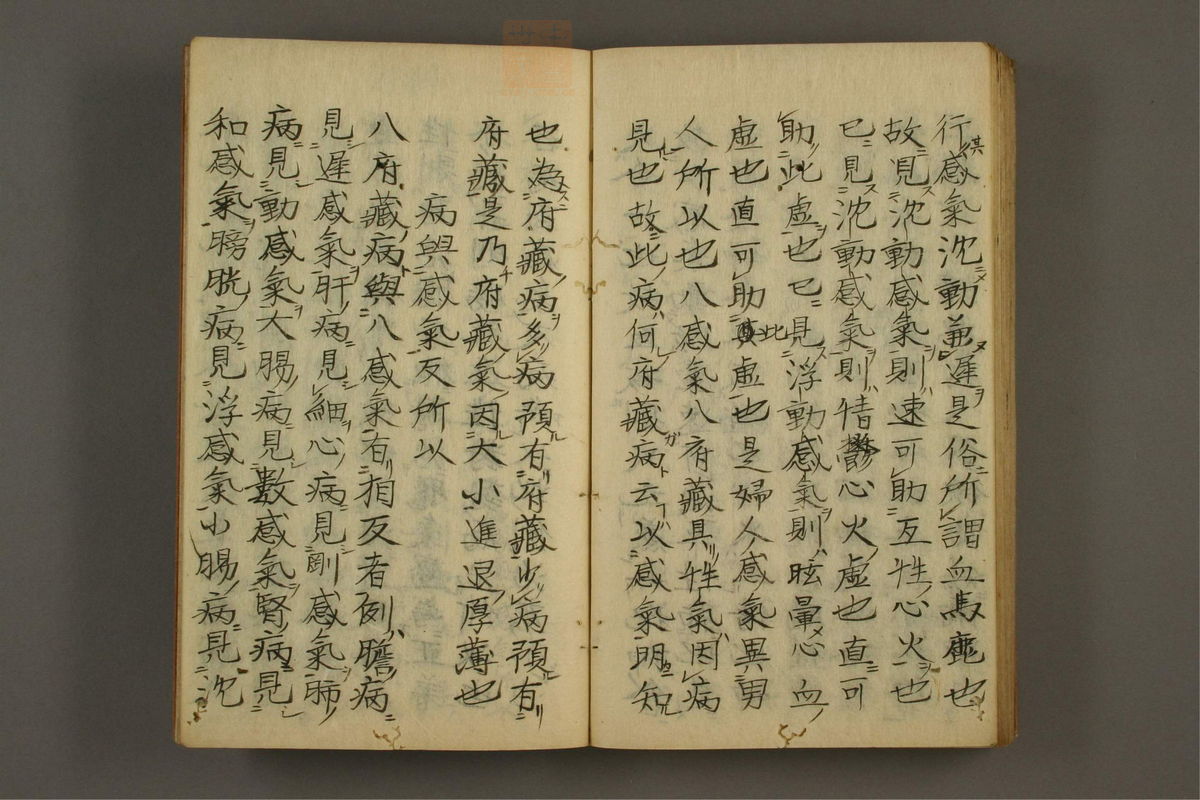 行其感氣沈動兼遲是俗所謂血馬鹿也
故見沈動感氣則速可助互性心火也
已見沈動感氣則情鬱心火虛也直可
助此虛也已見浮動感氣則眩暈心血
虛也直可助此虛也是婦人感氣異男
人所以也八感氣八府藏具性氣因病
見也故此病何府藏病云以感氣明知
也為府藏病多病預有府藏少病預有
府藏是乃府藏氣因大小進退厚薄也
病與感氣反所以
八府藏病與八感氣有相反者例膽病
見遲感氣肝病見細心病見剛感氣肺
病見動感氣大腸病見數感氣腎病見
和感氣膀胱病見浮感氣小腸病見沈